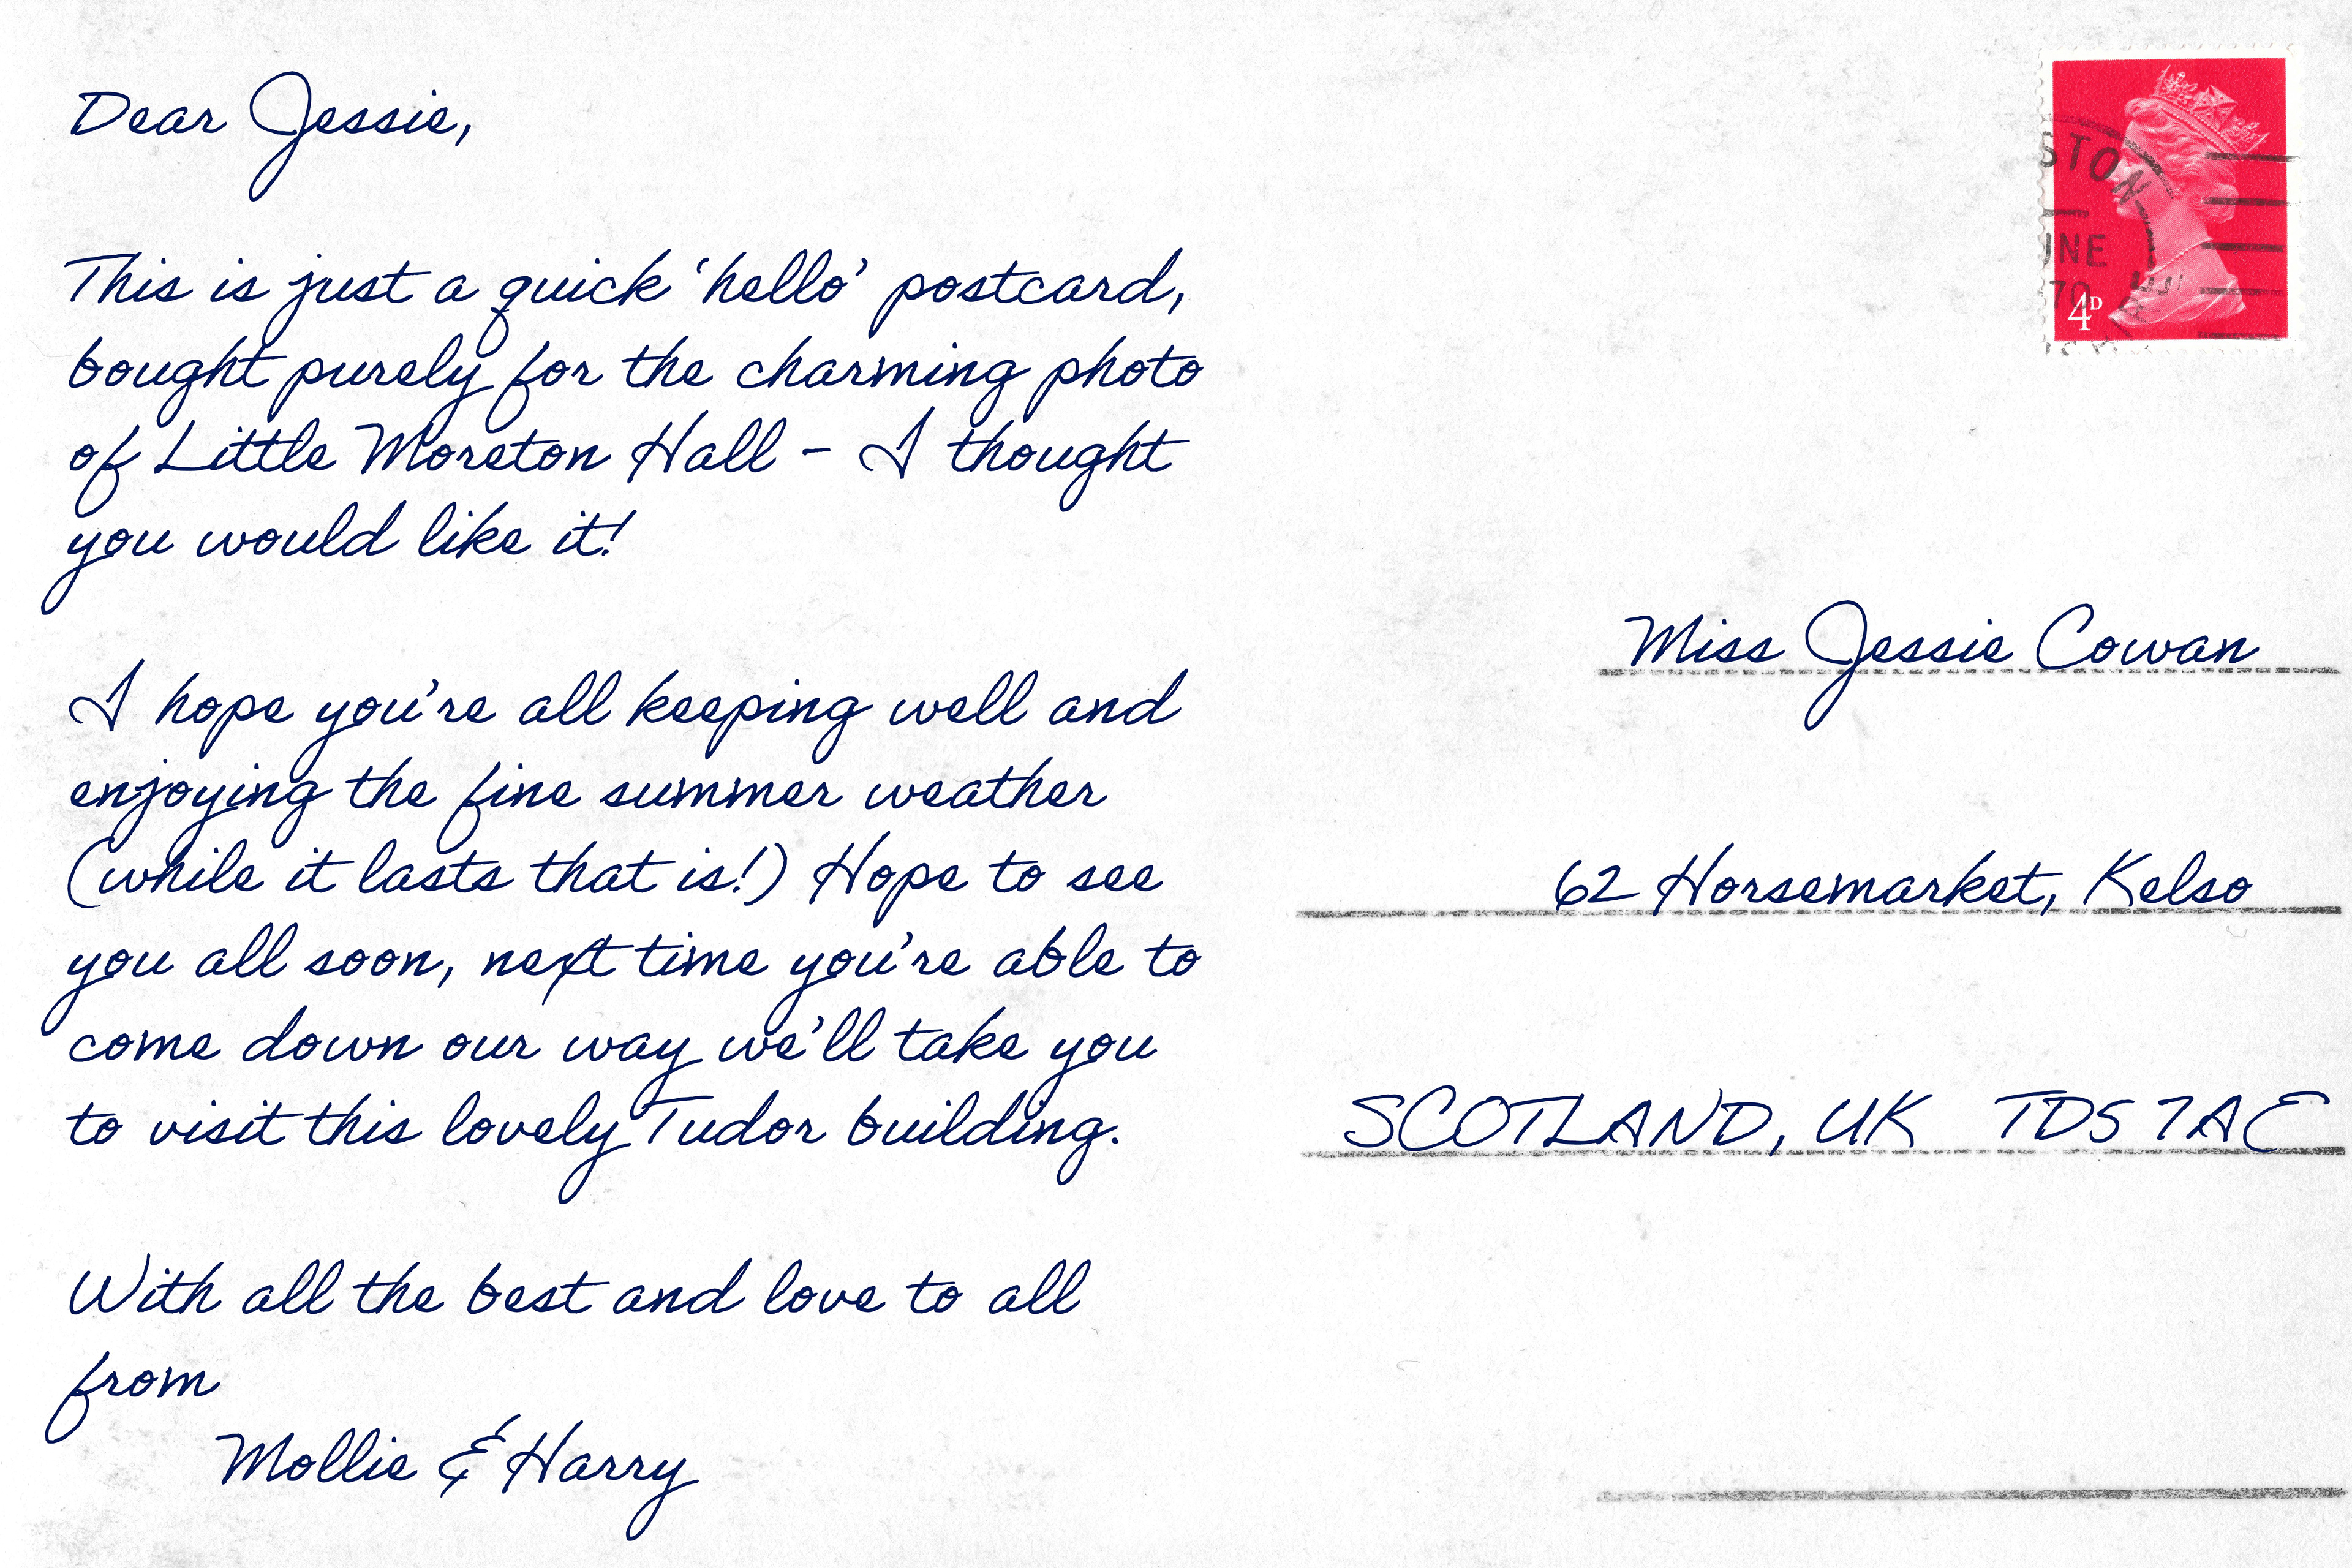 Dear Jessie,
This is just a quick 'hello' postcard,
bought purely for the charming photo
of Little Moreton Hall - I thought
you would like it!
I hope you're all keeping well and
enjoying the fine summer weather
(while it lasts that is!) Hope to see
you all soon, next time you're able to
come down our way we'll take you
to visit this lovely Tudor building.
With all the best and love to all
from
Mollie & Harry
STON
INE
70
4D
Miss Jessie Cowan
62 Horsemarket, Kelso
SCOTLAND, UK TD5 7AE